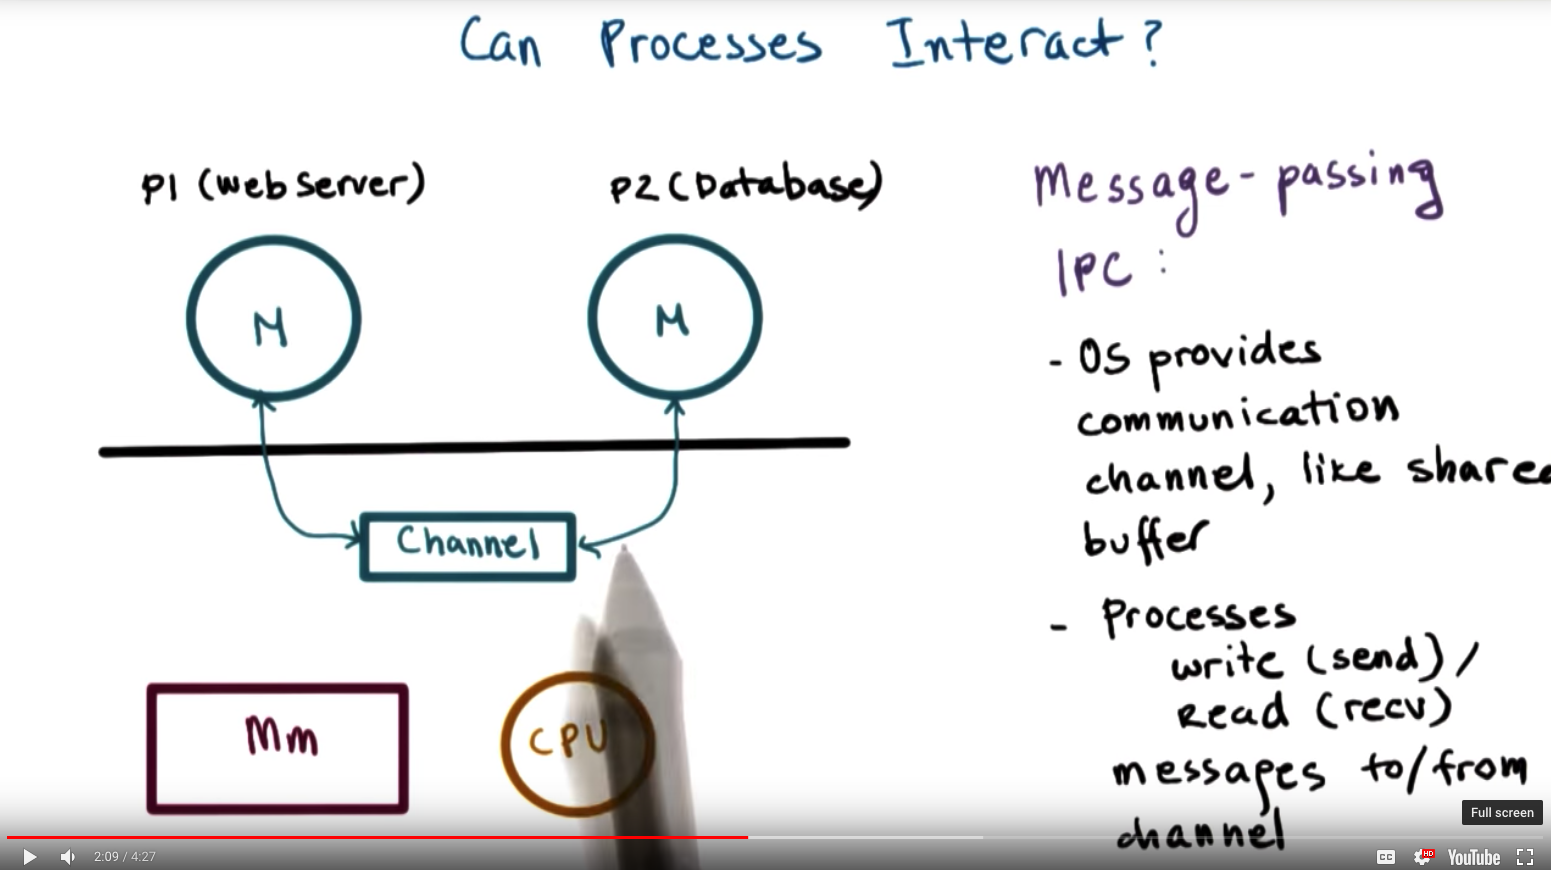 Can Processes Interact?
P1 (web server)
P2 (Database)
M
M
Channel
Mm
CPU
Message-passing
IPC :
- OS provides
communication
channel, like shared
buffer
- Processes
write (send) /
Read (recv)
messages to/from
channel
Full screen
2:09 / 4:27
CC
HD
YouTube